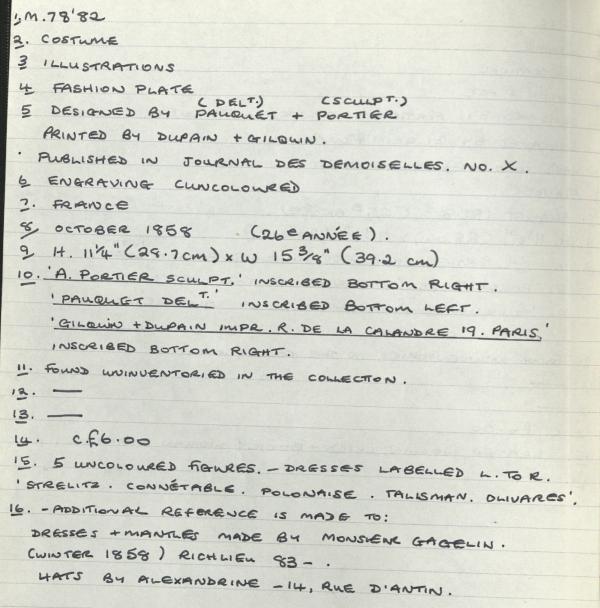 1. M.78'82
2. COSTUME
3 ILLUSTRATIONS
4 FASHION PLATE
(DELT.) (SCULPT.)
5 DESIGNED BY PAUQUET + PORTIER
PRINTED BY DUPAIN + GILQUIN.
. PUBLISHED IN JOURNAL DES DEMOISELLES. NO. X.
6 ENGRAVING (UNCOLOURED
7. FRANCE
8, OCTOBER 1858 (26e ANNÉE).
9 H. 11¼" (28.7cm) x W 15 3/8" (39.2 cm)
10. 'A. PORTIER SCULPT.' INSCRIBED BOTTOM RIGHT.
'PAUQUET DELT.' INSCRIBED BOTTOM LEFT.
'GILQUIN + DUPAIN IMPR. R. DE LA CALANDRE 19. PARIS,'
INSCRIBED BOTTOM RIGHT.
11. FOUND UNINVENTORIED IN THE COLLECTION.
12. —
13. —
14. C.£6.00
15. 5 UNCOLOURED FIGURES. - DRESSES LABELLED L. TO R.
'STRELITZ. CONNÉTABLE. POLONAISE. TALISMAN. OLIVARES'.
16. - ADDITIONAL REFERENCE IS MADE TO:
DRESSES + MANTLES MADE BY MONSIEUR GAGELIN.
(WINTER 1858) RICHLIEU 83 - .
HATS BY ALEXANDRINE - 14, RUE D'ANTIN.